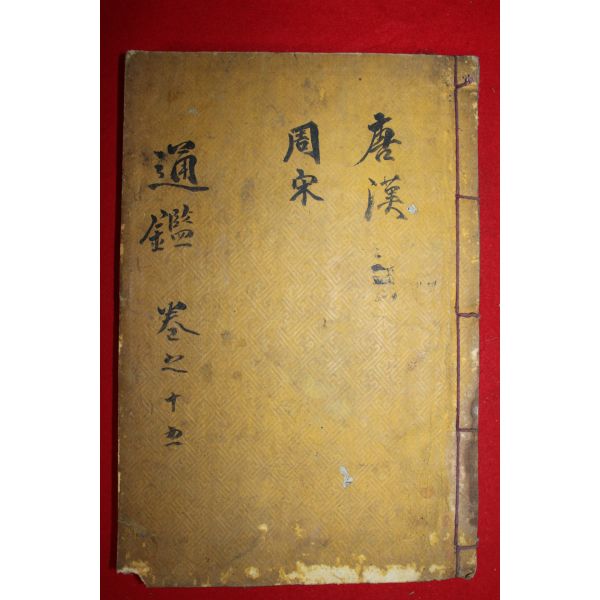 唐漢
周宋
通鑑 卷之十五